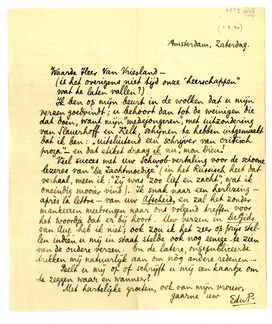 Amsterdam, Zaterdag.
Waarde Heer Van Vriesland —
(is het overigens niet tijd onze "heerschappen"
wat te laten vallen?)
Ik ben op mijn beurt in de wolken dat u mijn
verzen goedvindt; u behoort dan tot de weinigen die
dat doen, want mijn medejongeren, met uitzondering
van Slauerhoff en Kelk, schijnen te hebben uitgemaakt
dat ik ben: "uitsluitend een schrijver van critisch
proza" — en dat etiket draag ik nu, mon Dieu!
Veel succes met uw Schwob-vertaling voor de schoone
lezeres van "De Zachtmoedige" (in het Russisch heet dat
verhaal, meen ik: "Zij was zoo lief en zacht", wat ik
oneindig mooier vind). Ik snak naar een herlezing —
après la lettre — van uw Afscheid, en zal het zonder
mankeeren meebrengen naar ons volgend treffen voor
het woordje dat er bij hoort. Uw verzen in De Gids
van Aug. heb ik niet; ook zou ik het zeer op prijs stel-
len indien u mij in staat stelde ook nog eenige te zien
van de oudere verzen. En de latere, ongepubliceerde
trekken mij natuurlijk aan om nog andere redenen...
Belt u mij op of schrijft u mij een kaartje om
te zeggen waar en wanneer?
Met hartelijke groeten, ook van mijn vrouw,
gaarne uw
EduP.